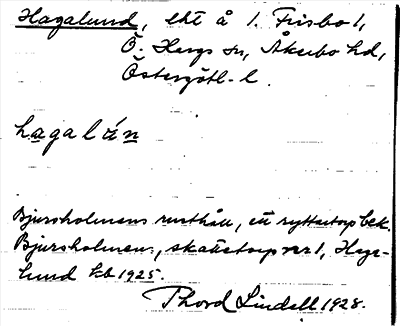 Hagalund, lht å 1. Frisbo 1,
Ö. Hargs sn, Åkerbo hd,
Östergötl. l.
hagalún
Bjursholmens rusthåll, ett ryttartorp bek.
Bjursholmen, skattetorp nr 1, Haga-
lund kb 1925.
Thord Lindell 1928.